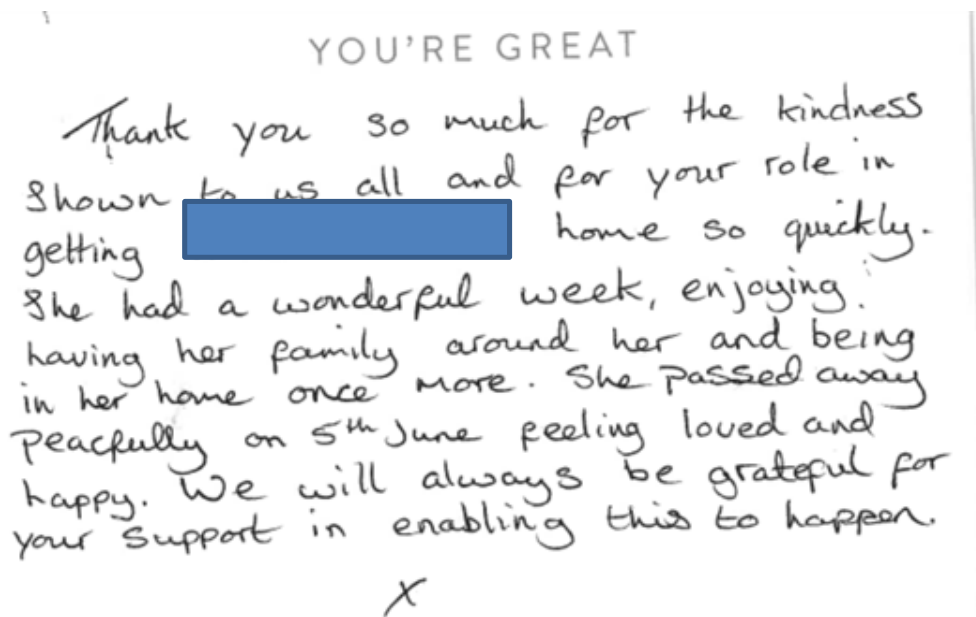 YOU'RE GREAT
Thank you so much for the kindness
shown to us all and for your role in
getting home so quickly.
She had a wonderful week, enjoying
having her family around her and being
in her home once more. She passed away
peacfully on 5th June feeling loved and
happy. We will always be grateful for
your support in enabling this to happen.
X